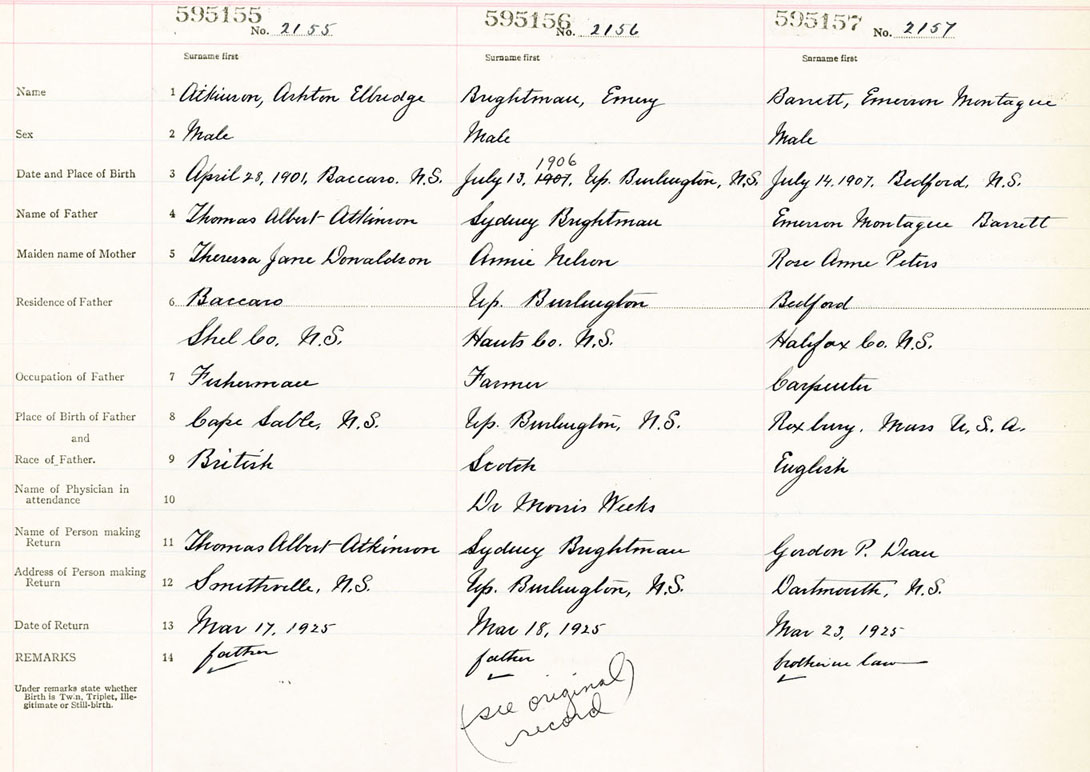 595155 595156 595157
No. 2155 No. 2156 No. 2157
Surname first Surname first Surname first
Name 1 Atkinson, Ashton Elbridge Brightman, Emery Barrett, Emerson Montague
Sex 2 Male Male Male
1906
Date and Place of Birth 3 April 28, 1901, Baccaro. N.S. July 13, 1907, Up. Burlington, N.S. July 14, 1907. Bedford, N.S.
Name of Father 4 Thomas Albert Atkinson Sydney Brightman Emerson Montague Barrett
Maiden name of Mother 5 Theressa Jane Donaldson Annie Nelson Rose Anne Peters
Residence of Father 6 Baccaro Up. Burlington Bedford
Shel Co. N.S. Hants Co. N.S. Halifax Co. N.S.
Occupation of Father 7 Fisherman Farmer Carpenter
Place of Birth of Father 8 Cape Sable, N.S. Up. Burlington, N.S. Roxbury, Mass U.S.A.
and
Race of Father. 9 British Scotch English
Name of Physician in
attendance 10 Dr Morris Weeks
Name of Person making
Return 11 Thomas Albert Atkinson Sydney Brightman Gordon P. Dean
Address of Person making
Return 12 Smithville, N.S. Up. Burlington, N.S. Dartmouth, N.S.
Date of Return 13 Mar 17, 1925 Mar 18, 1925 Mar 23, 1925
REMARKS 14 father father brother in law
Under remarks state whether
Birth is Twin, Triplet, Ille-
gitimate or Still-birth.
(see original
record)